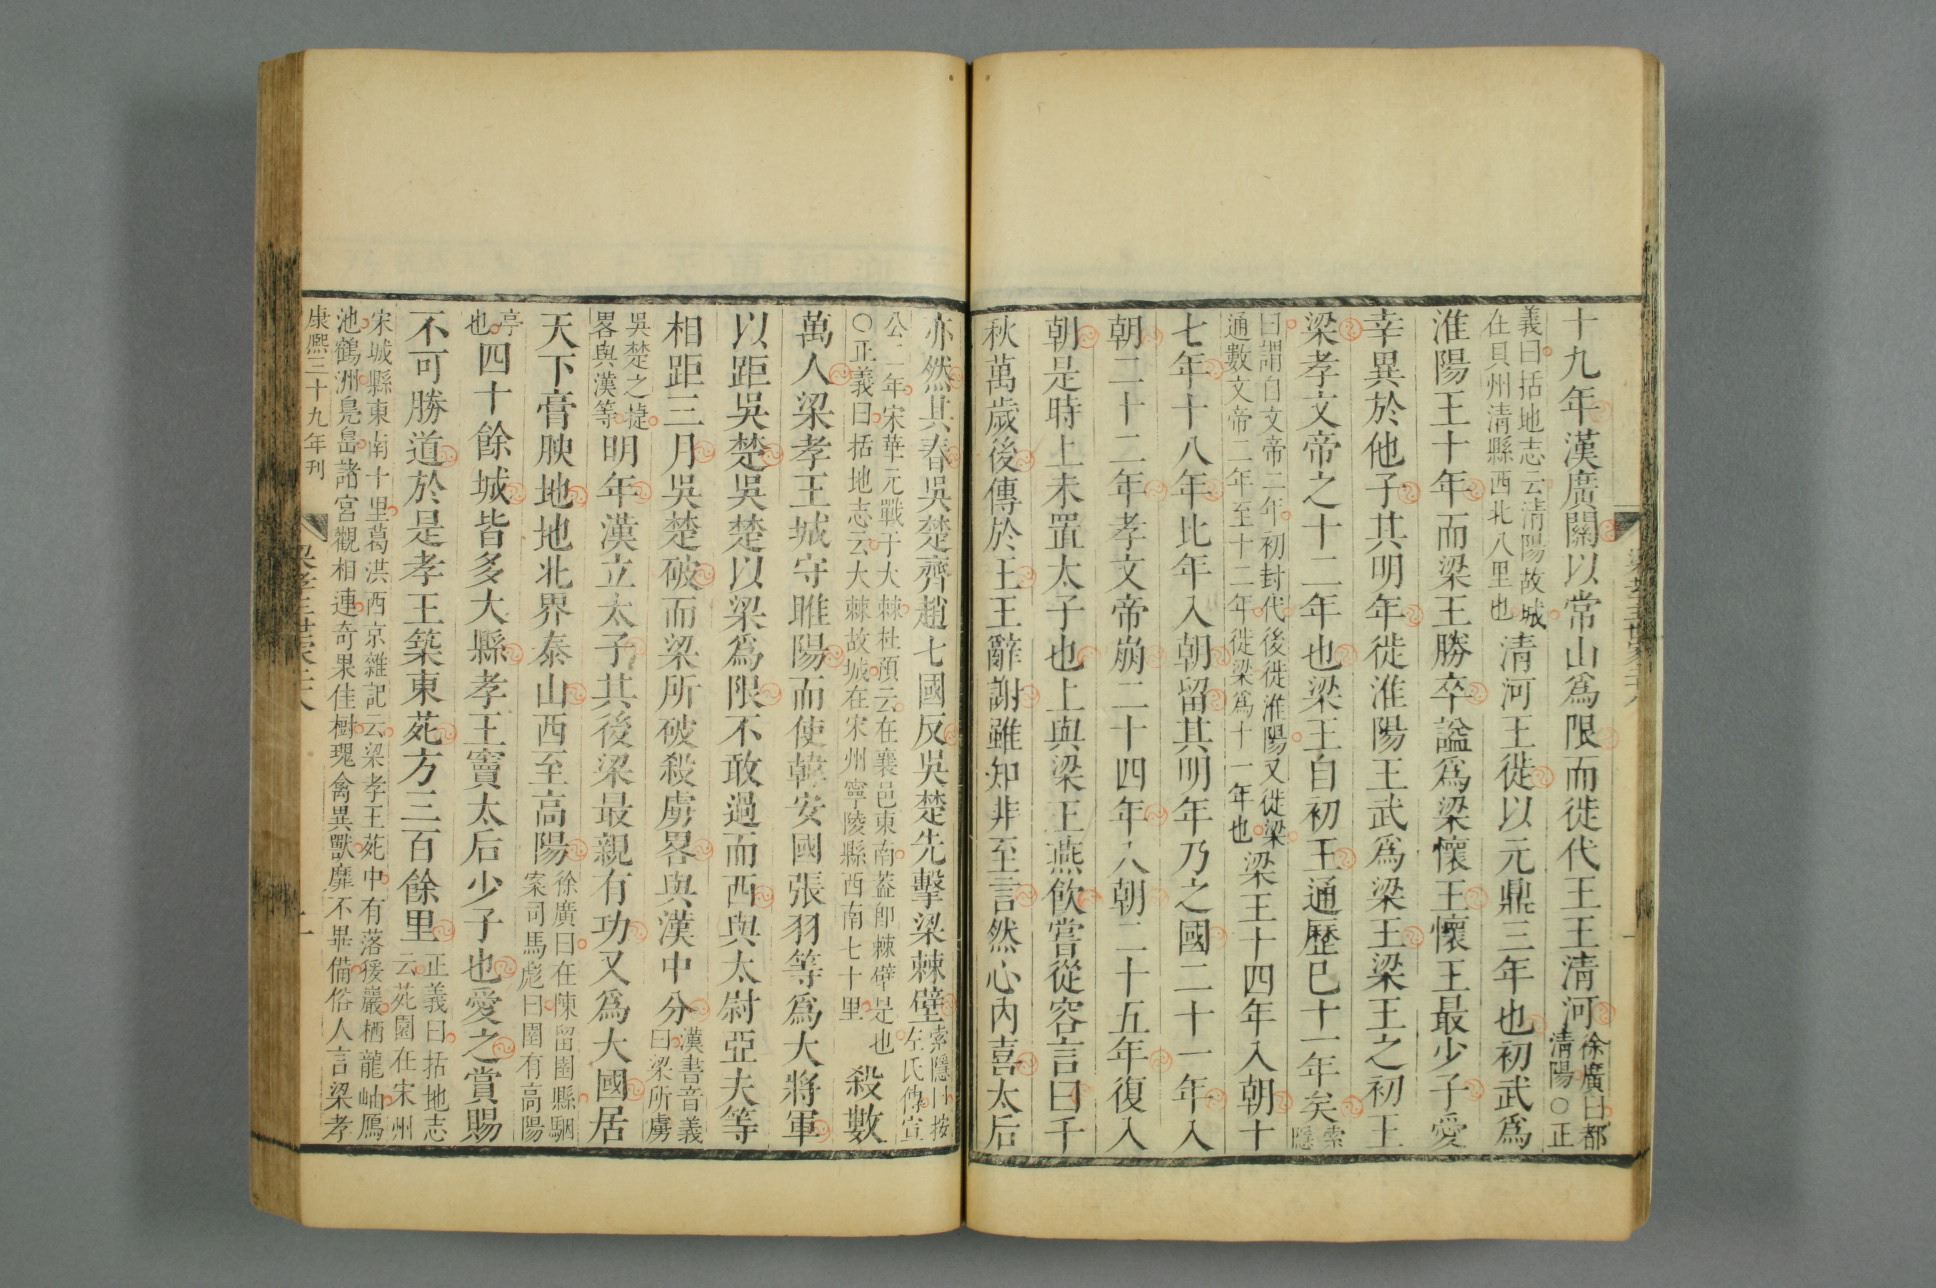 十九年漢廣關以常山爲限而徙代王王清河徐廣曰都清陽○正
義曰括地志云清陽故城在貝州清縣西北八里也清河王徙以元鼎三年也初武爲
淮陽王十年而梁王勝卒諡爲梁懷王懷王最少子愛
幸異於他子其明年徙淮陽王武爲梁王梁王之初王
梁孝文帝之十二年也梁王自初王通歷已十一年矣索隱
曰謂自文帝二年初封代後徙淮陽又徙梁通數文帝二年至十二年徙梁爲十一年也梁王十四年入朝十
七年十八年比年入朝留其明年乃之國二十一年入
朝二十二年孝文帝崩二十四年入朝二十五年復入
朝是時上未置太子也上與梁王燕飲嘗從容言曰千
秋萬歲後傳於王王辭謝雖知非至言然心內喜太后
亦然其春吳楚齊趙七國反吳楚先擊梁棘壁索隱曰按左氏傳宣
公二年宋華元戰于大棘杜預云在襄邑東南葢卽棘壁是也○正義曰括地志云大棘故城在宋州寧陵縣西南七十里殺數
萬人梁孝王城守睢陽而使韓安國張羽等爲大將軍
以距吳楚吳楚以梁爲限不敢過而西與太尉亞夫等
相距三月吳楚破而梁所破殺虜畧與漢中分漢書音義曰梁所虜
吳楚之捷畧與漢等明年漢立太子其後梁最親有功又爲大國居
天下膏腴地地北界泰山西至高陽徐廣曰在陳留圉縣駰案司馬彪曰圉有高陽
亭也四十餘城皆多大縣孝王竇太后少子也愛之賞賜
不可勝道於是孝王築東苑方三百餘里正義曰括地志云苑園在宋州
宋城縣東南十里葛洪西京雜記云梁孝王苑中有落猨巖栖龍岫鴈池鶴洲鳧㠀諸宮觀相連奇果佳樹瑰禽異獸靡不畢備俗人言梁孝
康熙三十九年刊